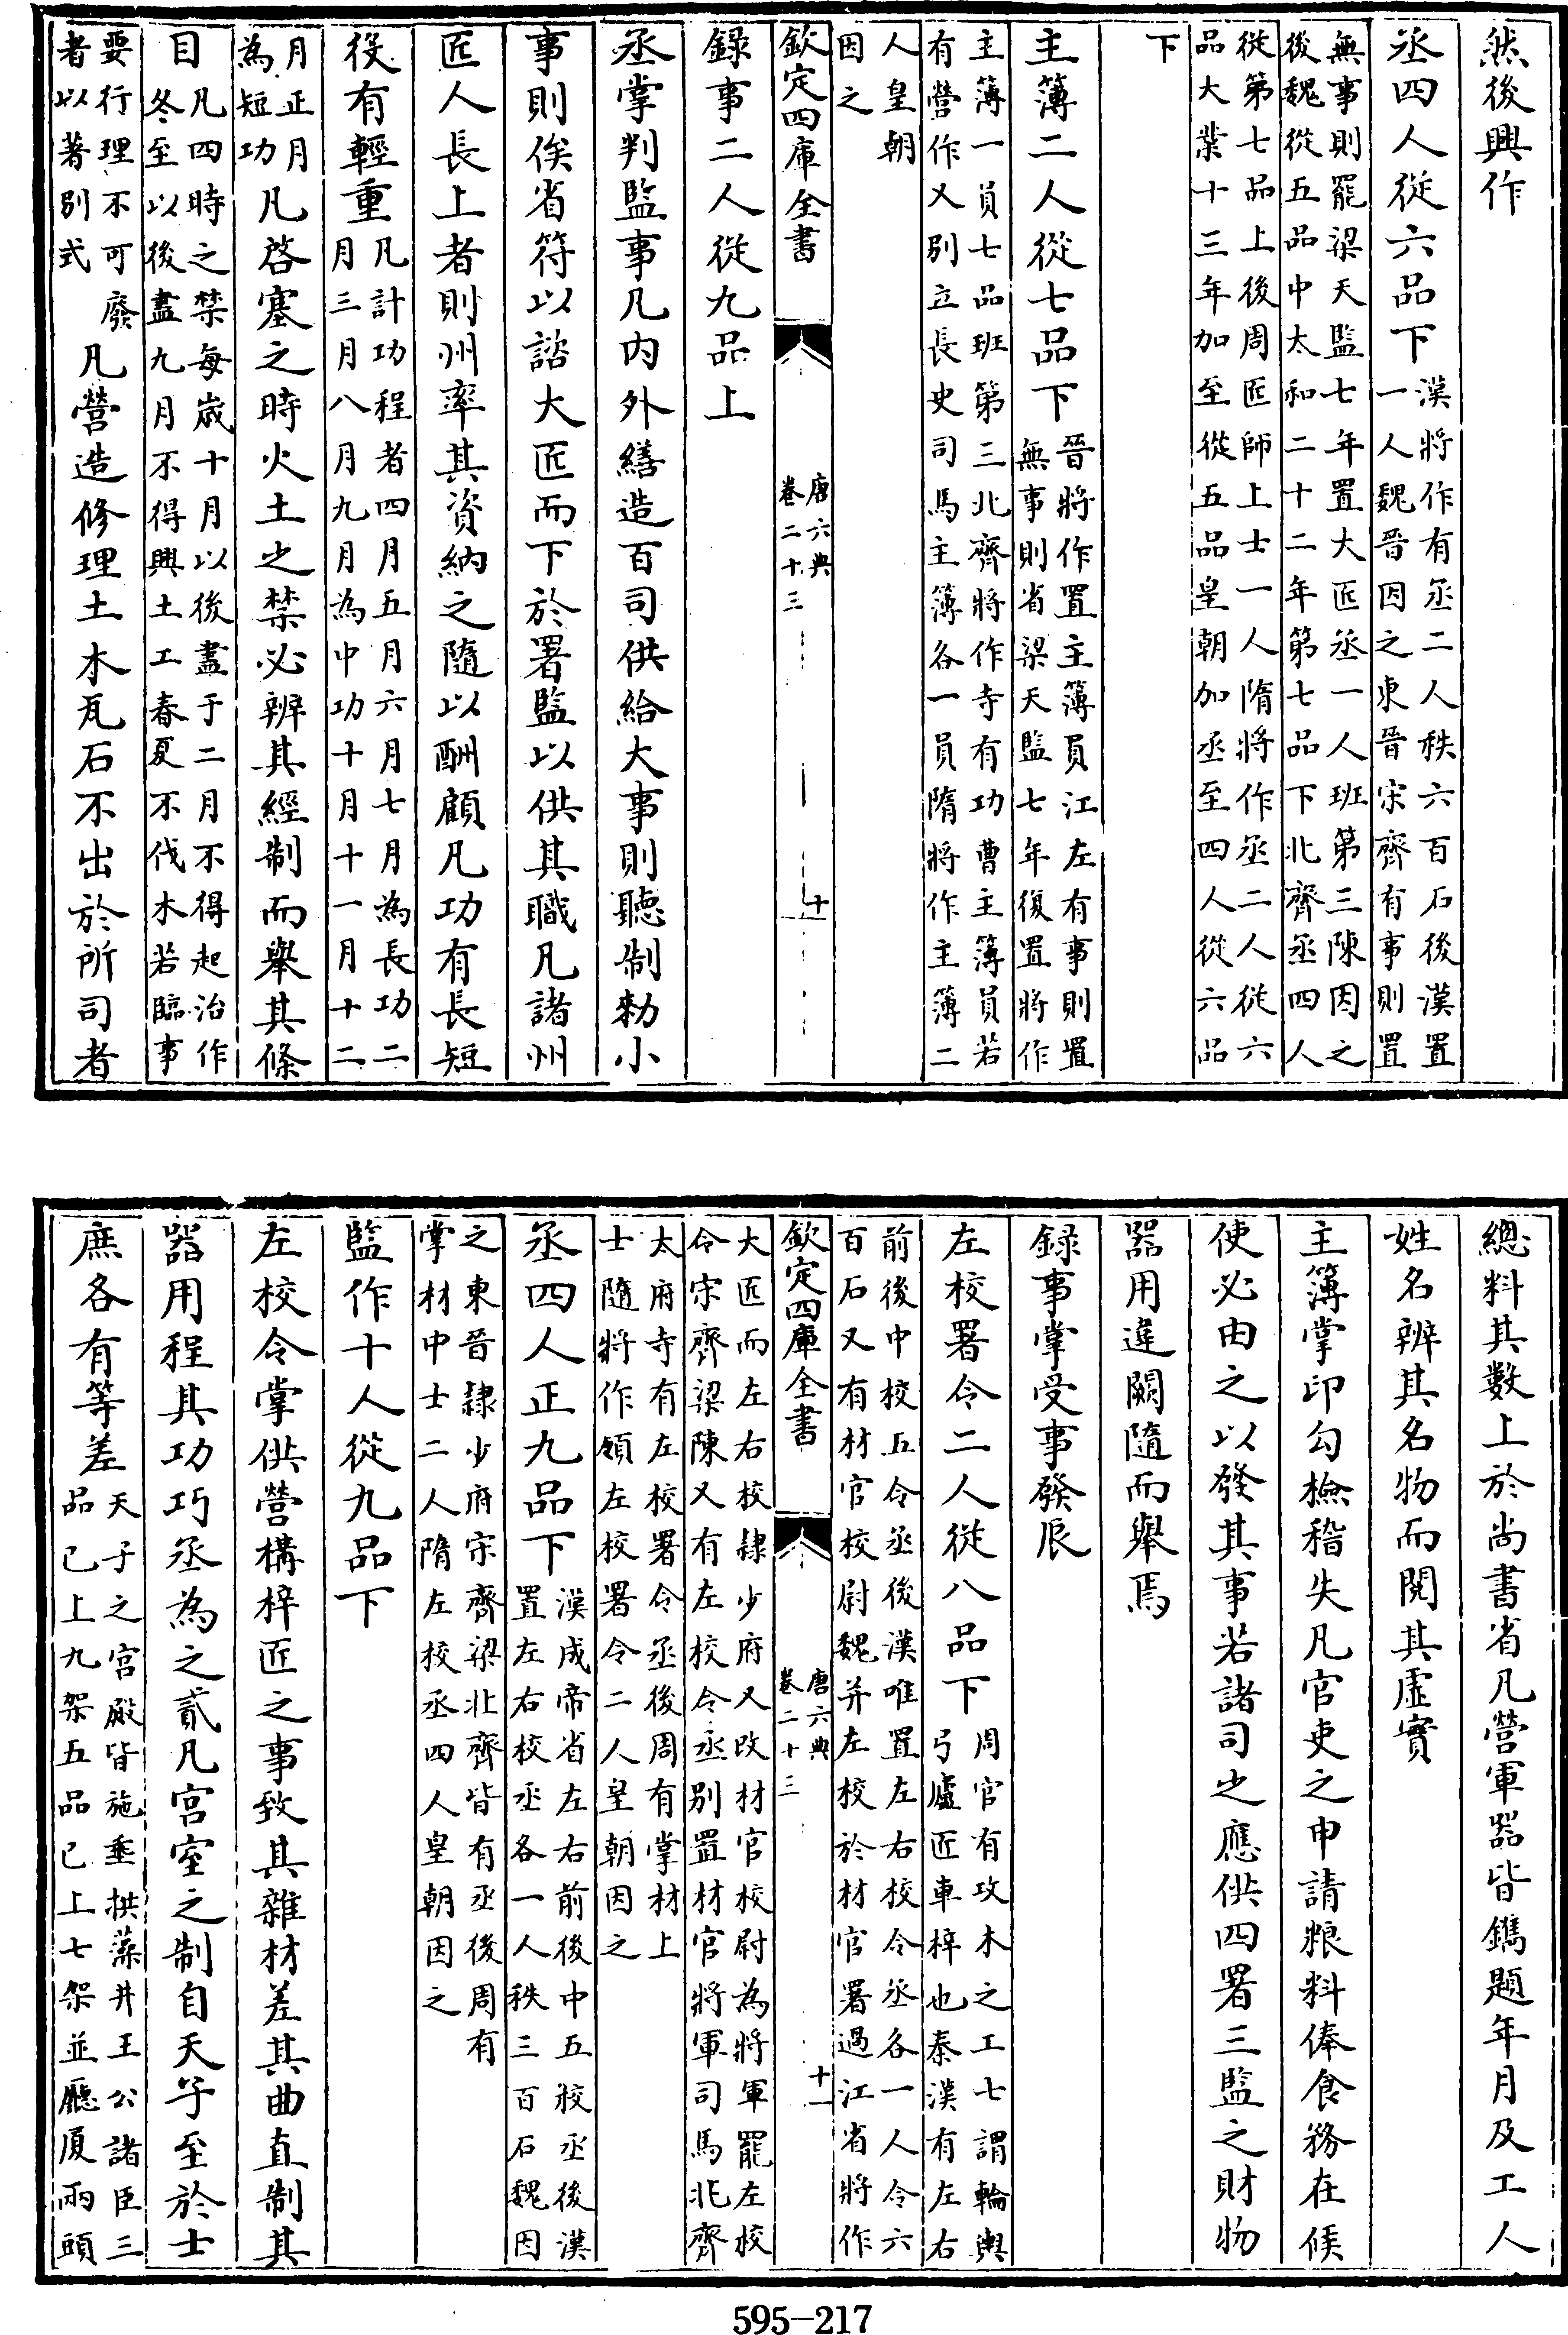 然後興作
丞四人從六品下漢將作有丞二人秩六百石後漢置
一人魏晉因之東晉宋齊有事則置
無事則罷梁天監七年置大匠丞一人班第三陳因之
後魏從五品中太和二十二年第七品下北齊丞四人
從第七品上後周匠師上士一人隋將作丞二人從六
品大業十三年加至從五品皇朝加丞至四人從六品
下
主簿二人從七品下晉將作置主簿員江左有事則置
無事則省梁天監七年復置將作
主簿一員七品班第三北齊將作寺有功曹主簿員若
有營作又別立長史司馬主簿各一員隋將作主簿二
人皇朝
因之
欽定四庫全書
唐六典
卷二十三
十
錄事二人從九品上
丞掌判監事凡內外繕造百司供給大事則聽制勑小
事則俟省符以諮大匠而下於署監以供其職凡諸州
匠人長上者則州率其資納之隨以酬顧凡功有長短
役有輕重凡計功程者四月五月六月七月為長功二
月三月八月九月為中功十月十一月十二
月正月
為短功
凡啓塞之時火土之禁必辨其經制而舉其條
目凡四時之禁每歲十月以後盡于二月不得起治作
冬至以後盡九月不得興土工春夏不伐木若臨事
要行理不可廢
者以著別式
凡營造修理土木瓦石不出於所司者
總料其數上於尚書省凡營軍器皆鐫題年月及工人
姓名辨其名物而閱其虛實
主簿掌印勾檢稽失凡官吏之申請粮料俸食務在候
使必由之以發其事若諸司之應供四署三監之財物
器用違闕隨而舉焉
錄事掌受事發辰
左校署令二人從八品下周官有攻木之工七謂輪輿
弓廬匠車梓也秦漢有左右
前後中校五令丞後漢唯置左右校令丞各一人令六
百石又有材官校尉魏并左校於材官署過江省將作
欽定四庫全書
唐六典
卷二十三
十一
大匠而左右校隸少府又改材官校尉為將軍罷左校
令宋齊梁陳又有左校令丞別置材官將軍司馬北齊
太府寺有左校署令丞後周有掌材上
士隨將作領左校署令二人皇朝因之
丞四人正九品下漢成帝省左右前後中五校丞後漢
置左右校丞各一人秩三百石魏因
之東晉隸少府宋齊梁北齊皆有丞後周有
掌材中士二人隋左校丞四人皇朝因之
監作十人從九品下
左校令掌供營構梓匠之事致其雜材差其曲直制其
器用程其功巧丞為之貳凡宮室之制自天子至於士
庶各有等差天子之宮殿皆施重拱藻井王公諸臣三
品已上九架五品已上七架並廳厦兩頭
595-217